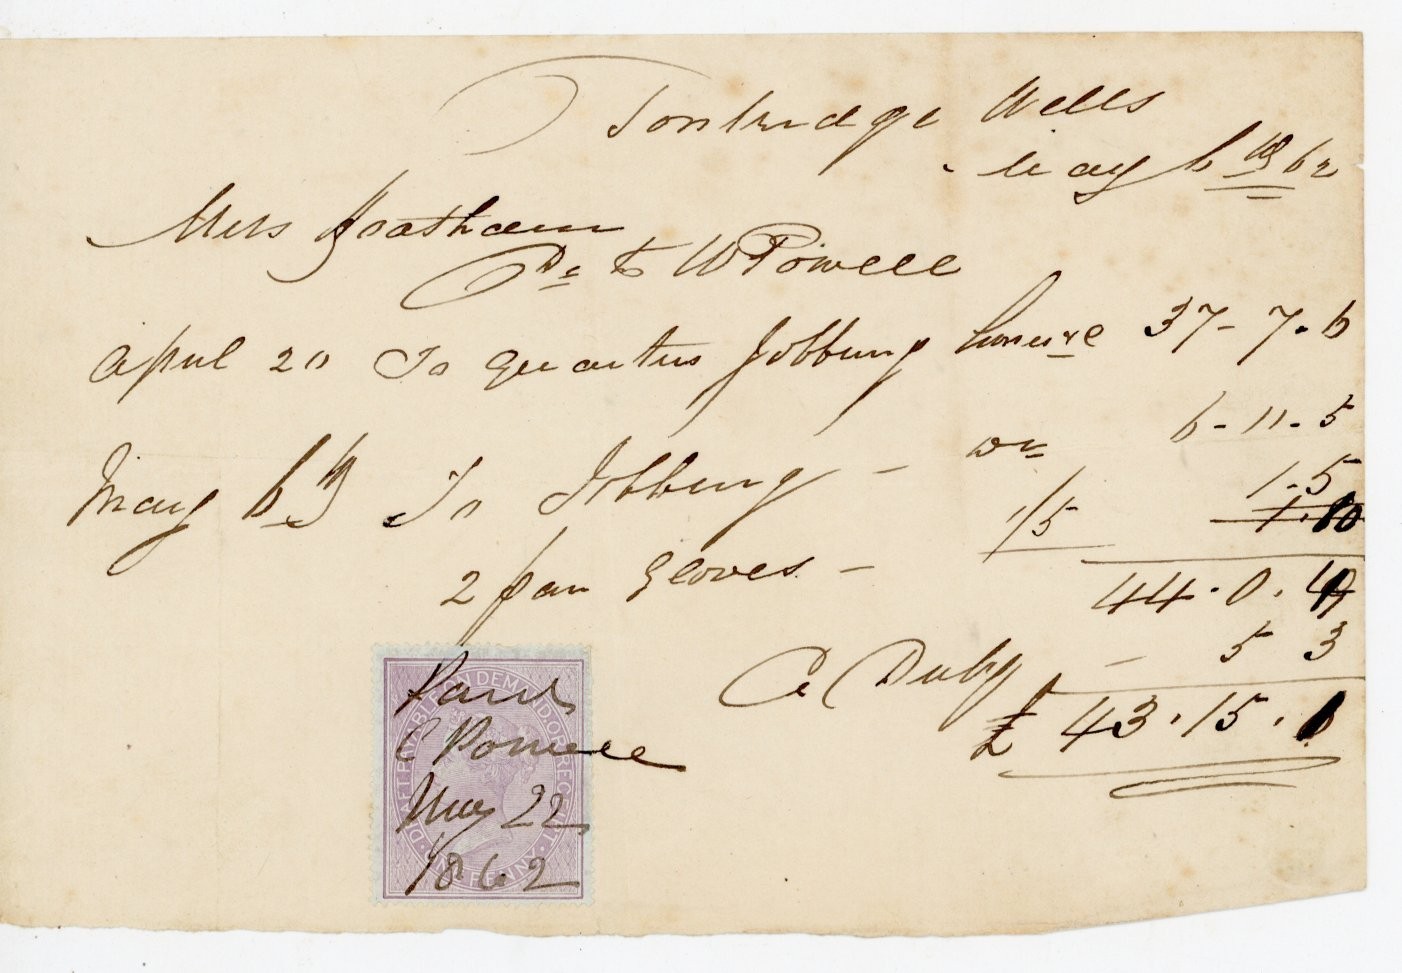 Tonbridge Wells
May 6th 62
Mrs
Dr to W Powell
April 20 To quarters Jobbing 37-7-6
May 6th To Jobbing - Do 6-11-5
2 pair Gloves - 1/5 1-5
1.10
44.0.4
C Duty - 5 3
£43.15.1
DRAFT PAYABLE ON DEMAND, OR RECEIPT. ONE PENNY.
Paid
C Powell
May 22
1862